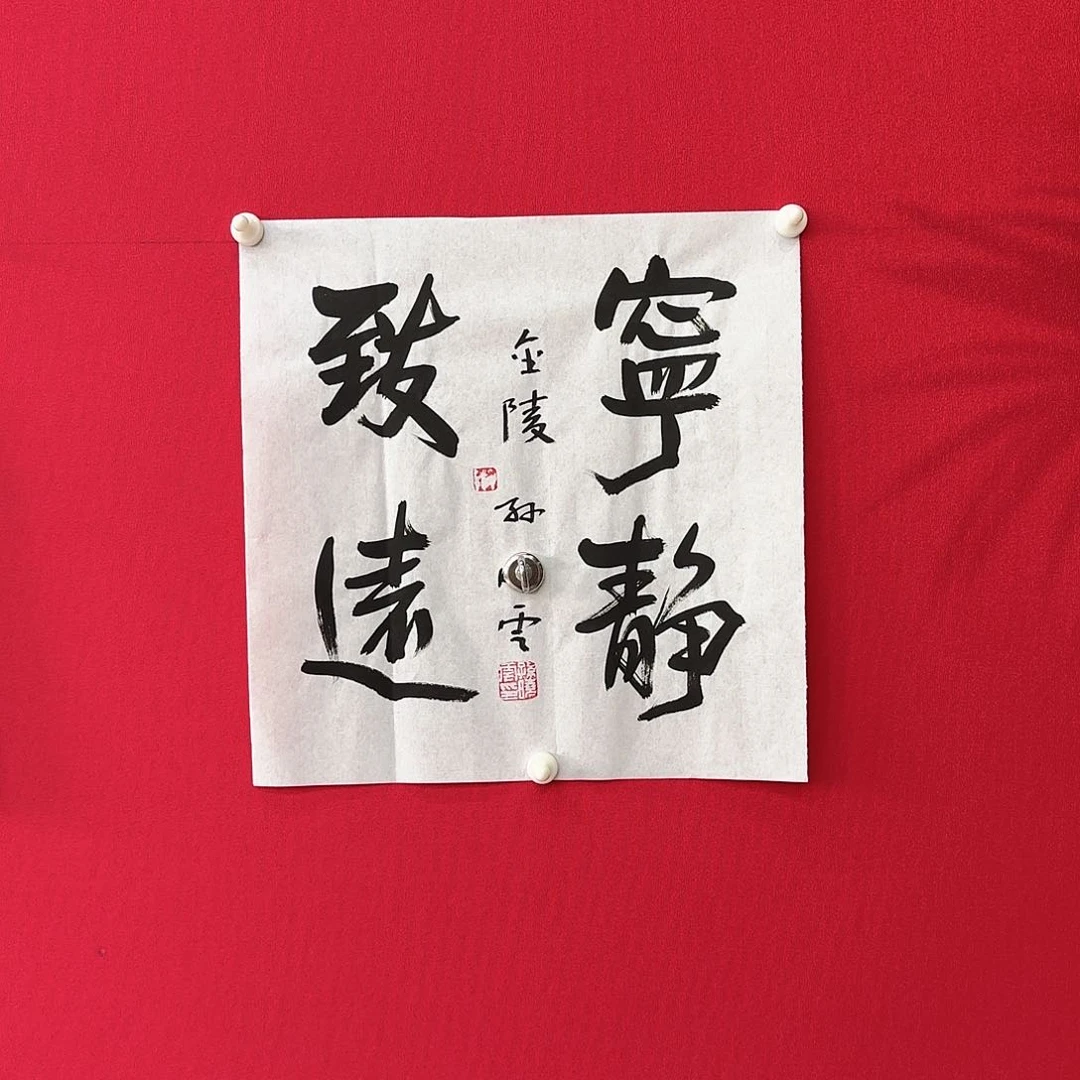 寧靜
金陵孫雲
致遠